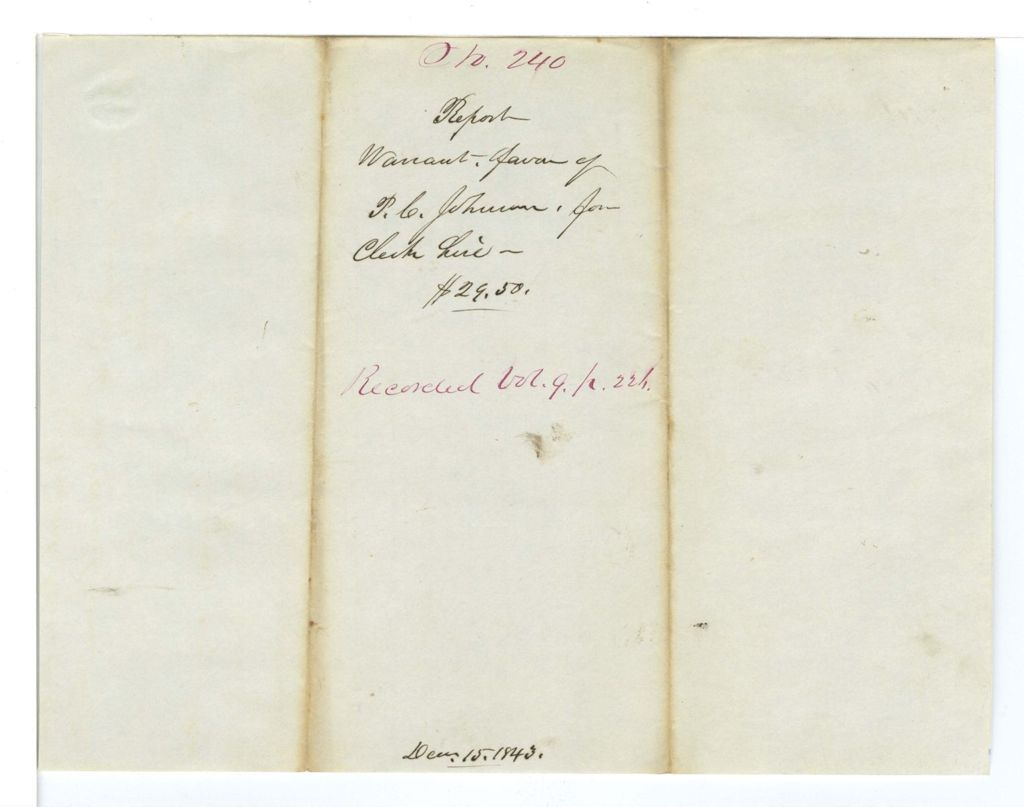 No. 240
Report
Warrant. favor of
P. C. Johnson. for
Clerk hire –
$29.50.
Recorded Vol. 9. p.
Decr. 15. 1843.